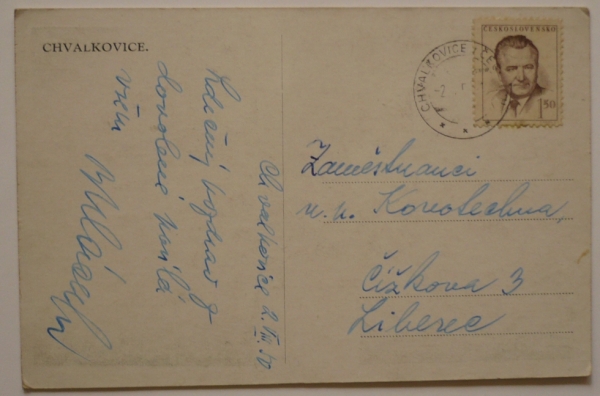 CHVALKOVICE.
Chvalkovice 2. VIII. 50
Srdečný pozdrav z
dovolené posílá
vším
ČESKOSLOVENSKO
1.50
CHVALKOVICE
Zaměstnanci
n. p. Kovotechna,
Čížkova 3
Liberec